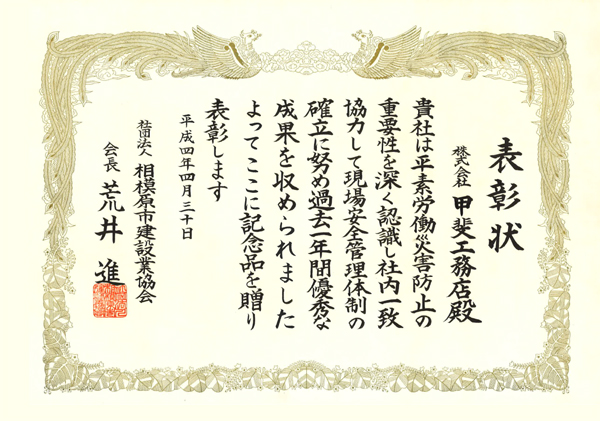 表彰状
株式会社 甲斐工務店殿
貴社は平素労働災害防止の
重要性を深く認識し社内一致
協力して現場安全管理体制の
確立に努め過去一年間優秀な
成果を収められました
よってここに記念品を贈り
表彰します
平成四年四月三十日
社団法人 相模原市建設業協会
会長 荒井 進